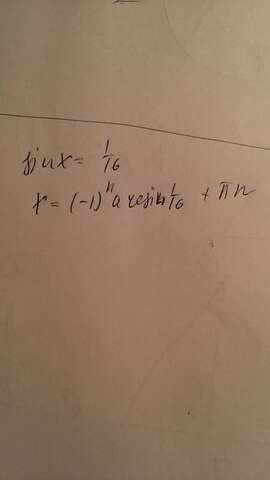 sin x = 1/16
x = (-1)^n arcsin 1/16 + πn